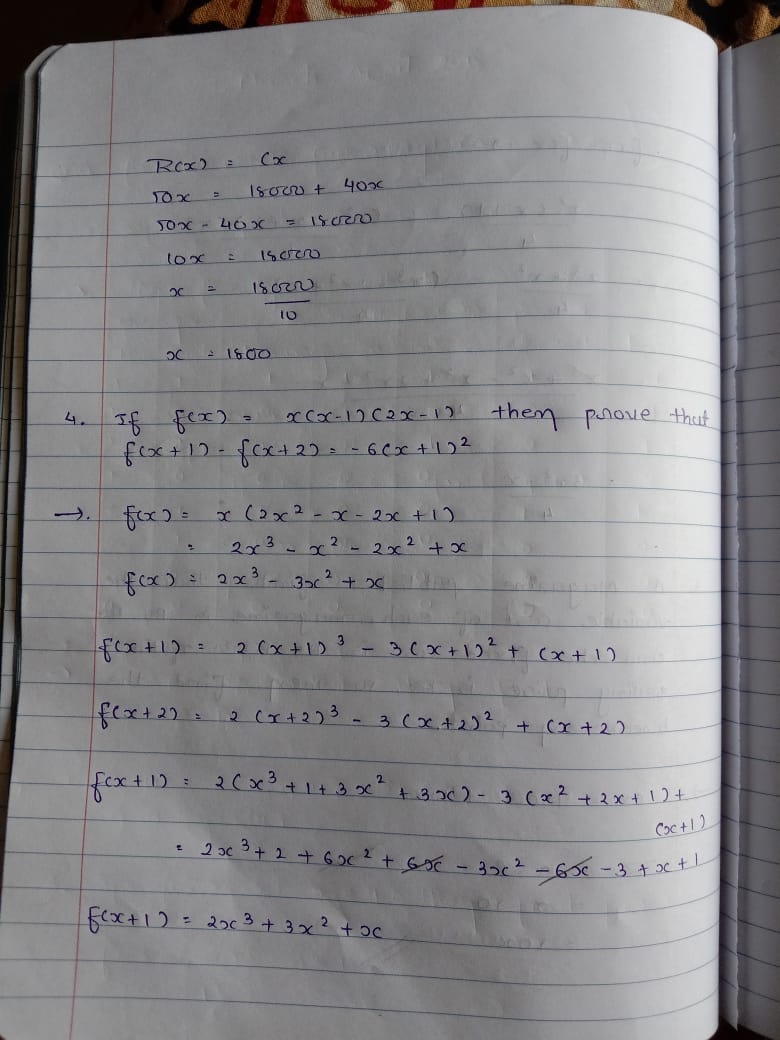 R(x) = Cx
50x = 18000 + 40x
50x - 40x = 18000
10x = 18000
x = 18000
10
x = 1800
4. If f(x) = x(x-1)(2x-1) then prove that
f(x+1) - f(x+2) = -6(x+1)²
→. f(x) = x(2x² - x - 2x + 1)
= 2x³ - x² - 2x² + x
f(x) = 2x³ - 3x² + x
f(x+1) = 2(x+1)³ - 3(x+1)² + (x+1)
f(x+2) = 2(x+2)³ - 3(x+2)² + (x+2)
f(x+1) = 2(x³ + 1 + 3x² + 3x) - 3(x² + 2x + 1) +
(x+1)
= 2x³ + 2 + 6x² + 6x - 3x² - 6x - 3 + x + 1
f(x+1) = 2x³ + 3x² + x